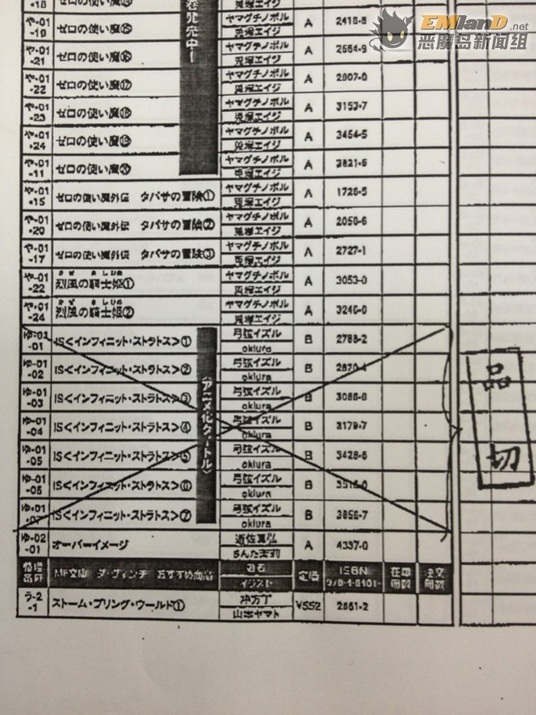 EMlanD.net
恶魔岛新闻组
-18 ゼロの使い魔⑮ ヤマグチノボル A 2418-8
兎塚エイジ
や-01 -21 ゼロの使い魔⑯ ヤマグチノボル A 2664-9
兎塚エイジ
や-01 -22 ゼロの使い魔⑰ ヤマグチノボル A 2907-0
兎塚エイジ
や-01 -23 ゼロの使い魔⑱ ヤマグチノボル A 3153-7
兎塚エイジ
や-01 -24 ゼロの使い魔⑲ ヤマグチノボル A 3454-5
兎塚エイジ
や-01 -11 ゼロの使い魔⑳ ヤマグチノボル A 3821-6
兎塚エイジ
発売中!
や-01 -15 ゼロの使い魔外伝 タバサの冒険① ヤマグチノボル A 1726-5
兎塚エイジ
や-01 -20 ゼロの使い魔外伝 タバサの冒険② ヤマグチノボル A 2050-6
兎塚エイジ
や-01 -17 ゼロの使い魔外伝 タバサの冒険③ ヤマグチノボル A 2727-1
兎塚エイジ
や-01 -22 烈風の騎士姫① ヤマグチノボル A 3053-0
兎塚エイジ
や-01 -24 烈風の騎士姫② ヤマグチノボル A 3246-0
兎塚エイジ
ゆ-01 -01 IS<インフィニット・ストラトス>① 弓弦イズル B 2788-2
okiura
ゆ-01 -02 IS<インフィニット・ストラトス>② 弓弦イズル B
okiura
ゆ-01 -03 IS<インフィニット・ストラトス>③ 弓弦イズル B
okiura
ゆ-01 -04 IS<インフィニット・ストラトス>④ 弓弦イズル B 3179-7
okiura
ゆ-01 -05 IS<インフィニット・ストラトス>⑤ 弓弦イズル B 3428-6
okiura
ゆ-01 -06 IS<インフィニット・ストラトス>⑥ 弓弦イズル B
okiura
ゆ-01 -07 IS<インフィニット・ストラトス>⑦ 弓弦イズル B
okiura
アニメ化タイトル
品切
ゆ-02 -01 オーバーイメージ 遊佐真弘 A 4337-0
さんた茉莉
MF文庫 ダ・ヴィンチ おすすめ商品 著者 定価 ISBN 在庫冊数 注文冊数
イラスト
う-2 -1 ストーム・ブリング・ワールド① 冲方丁 V552 2861-2
山本ヤマト